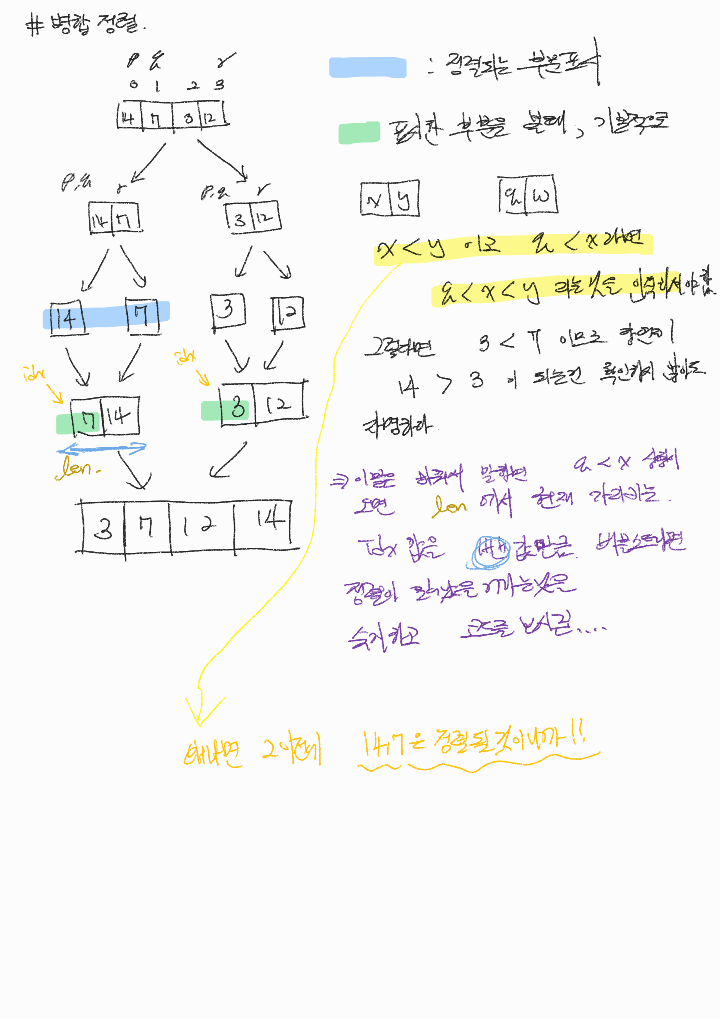 # 병합 정렬.
p q r
0 1 2 3
14 7 3 12
p,q r
14 7
p,q r
3 12
14 7 3 12
idx
7 14
idx
3 12
len.
3 7 12 14
: 정렬되는 부분표시
표시한 부분을 볼때, 기본적으로
x y q w
x < y 이고 q < x 라면
q < x < y 라는것을 인죽하셔야함.
그렇다면 3 < 7 이므로 당연히
14 > 3 이 되는건 확인하지 않아도
자명하다
⇒ 이말은 하셔서 말하면 q < x 상황이
오면 len 에서 현재 가리키는
idx 값을 뺀 값만큼 버블소트하면
정렬이 되었을 거라는것을
숙지하고 코드를 보시길....
왜냐면 그 이전에 14,7은 정렬될것이니까!!